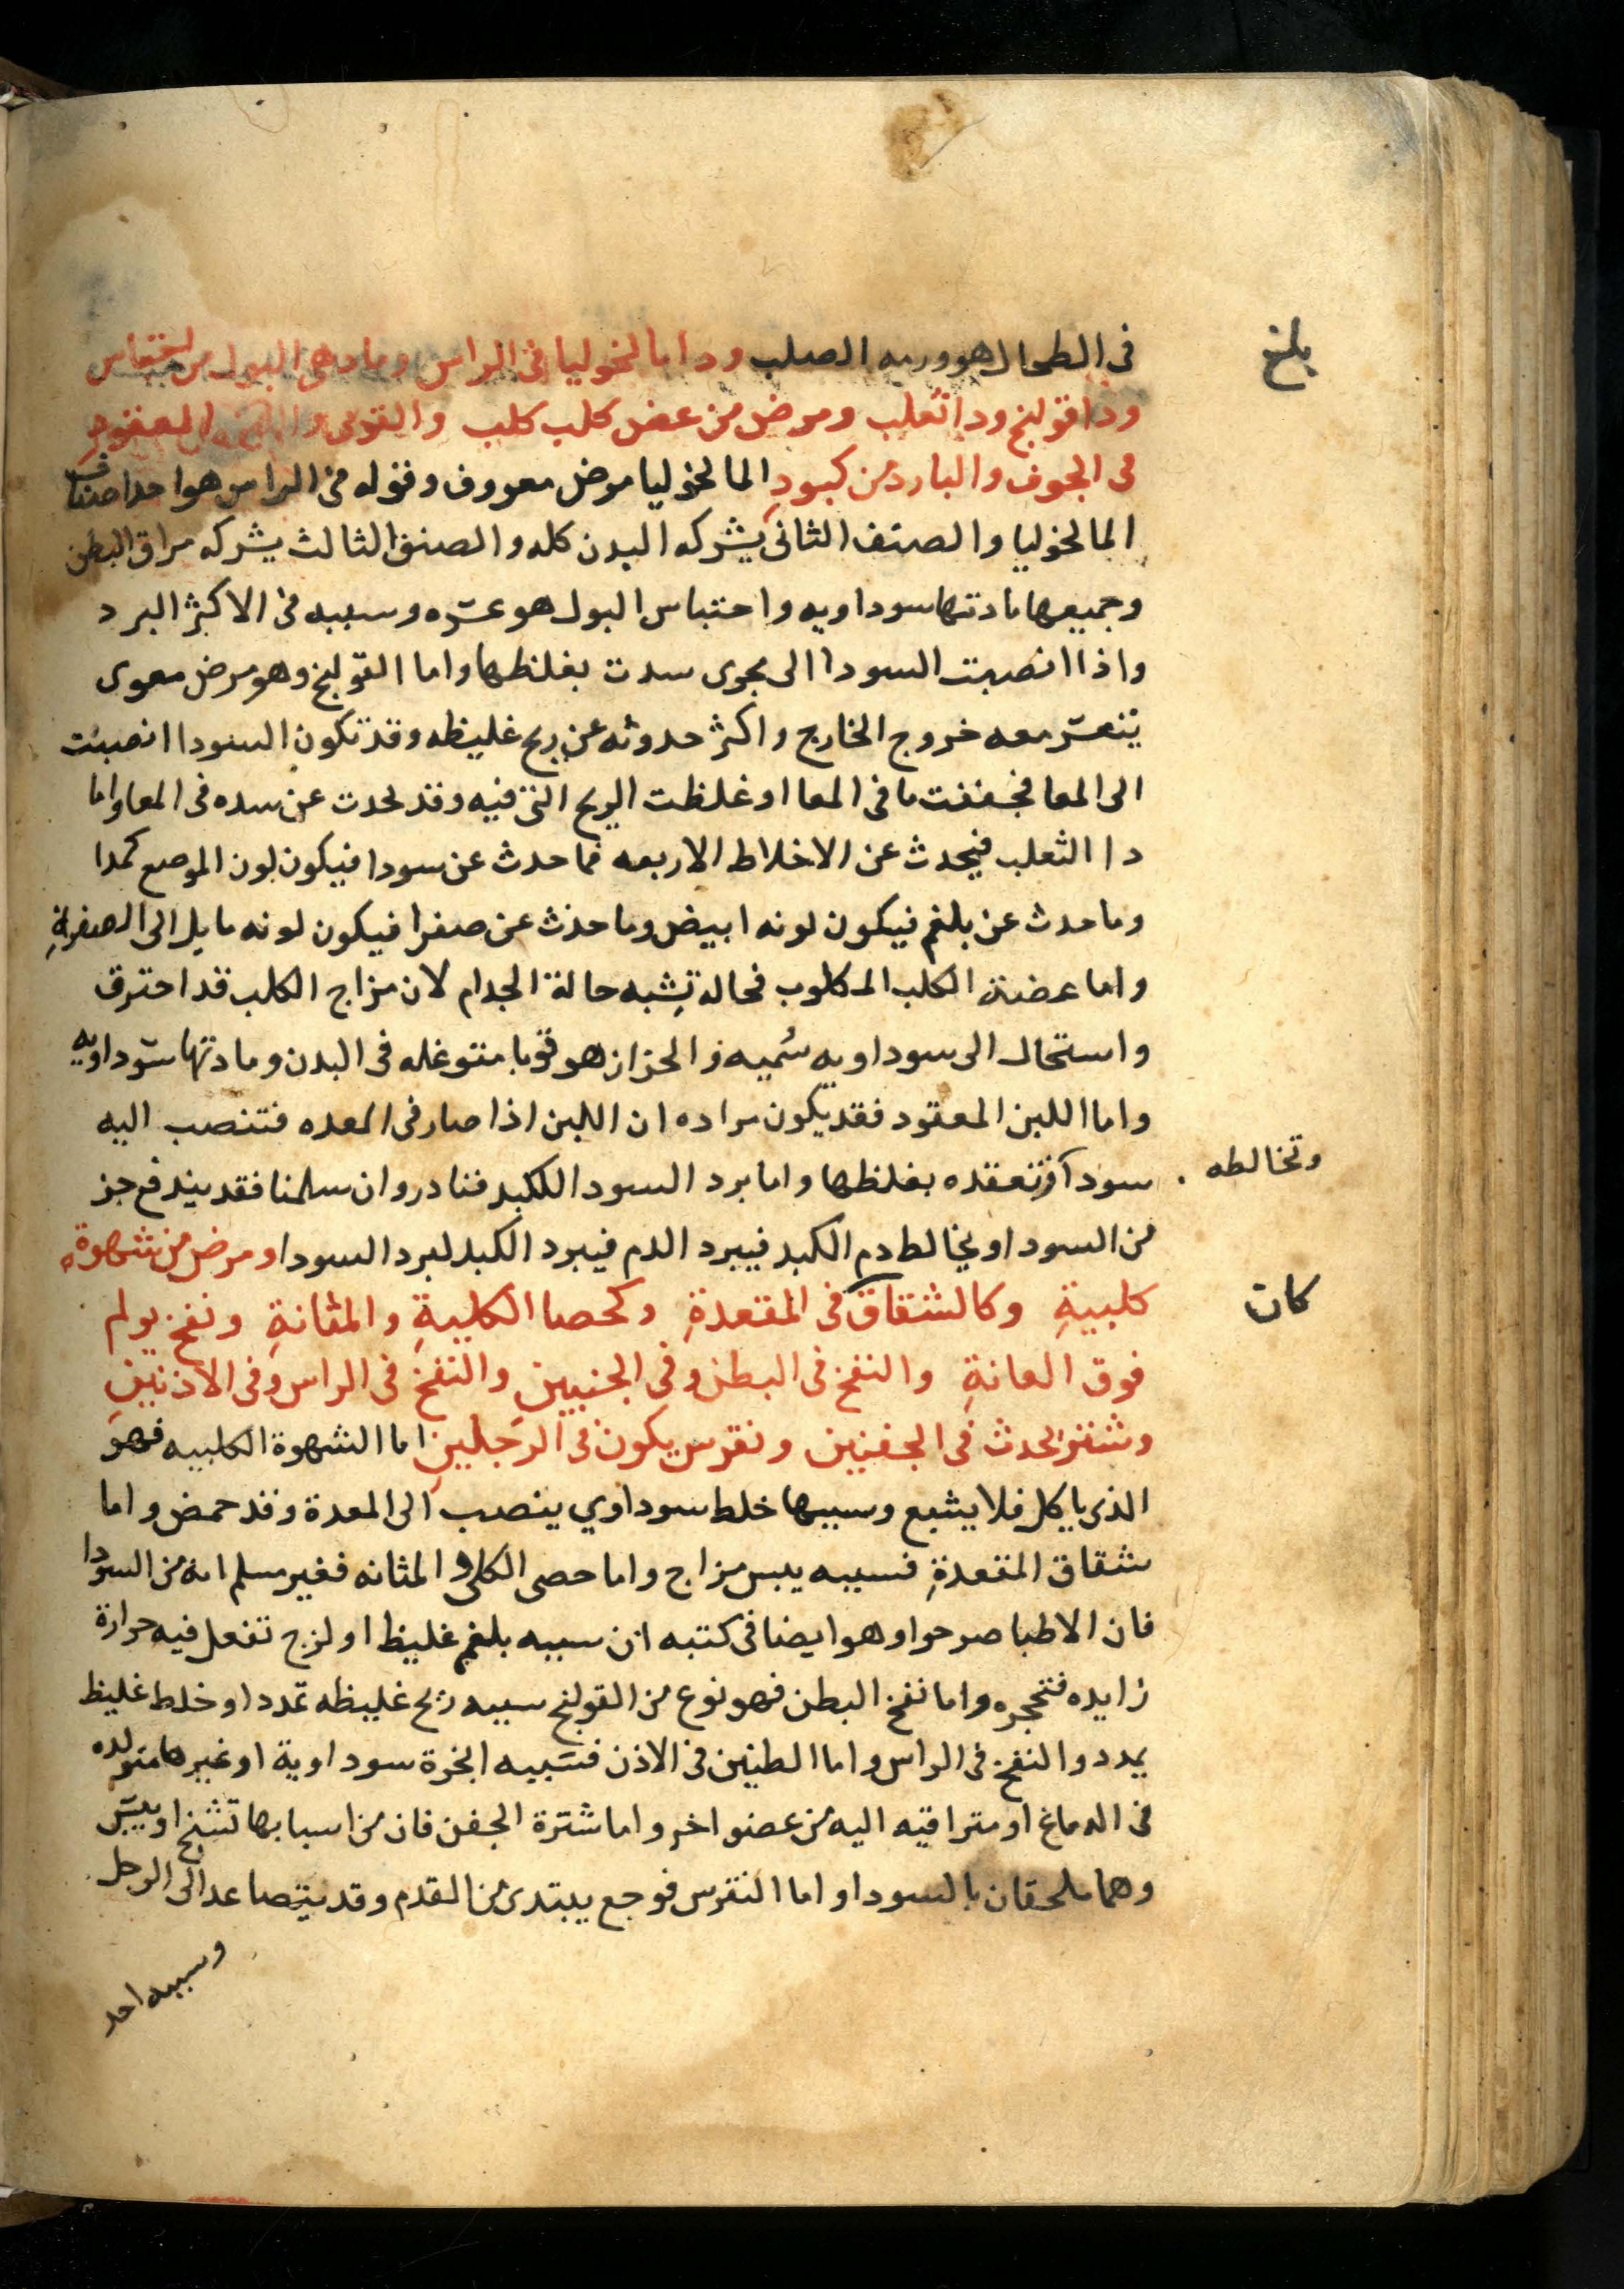 بلغ
فى الطحال هو ورمه الصلب ودا مالخوليا فى الراس وما دهى البول من احتباس
ودا قولنج ودا ثعلب ومرض من عض كلب كلب والقوبى المعقود
فى الجوف والبارد من كبود المالخوليا مرض معروف وقوله فى الراس هو احد اصناف
المالخوليا والصنف الثانى يشركه البدن كله والصنف الثالث يشركه مراق البطن
وجميعها مادتها سوداويه واحتباس البول هو عسره وسببه فى الاكثر البرد
واذا انصبت السودا الى مجرى سدت بغلظها واما القولنج وهو مرض معوى
يتعسر معه خروج الخارج واكثر حدوثه عن ريح غليظه وقد تكون السودا انصبت
الى المعا فجففت ما فى المعا او غلظت الريح التى فيه وقد يحدث عن سده فى المعا واما
دا الثعلب فيحدث عن الاخلاط الاربعه فما حدث عن سودا فيكون لون الموضع كمدا
وما حدث عن بلغم فيكون لونه ابيض وما حدث عن صفرا فيكون لونه مايل الى الصفرة
واما عضة الكلب المكلوب فحاله تشبه حالة الجدام لان مزاج الكلب قد احترق
واستحال الى سوداويه سميه والحزاز هو قوبا متوغله فى البدن ومادتها سوداويه
واما اللبن المعقود فقد يكون مراده ان اللبن اذا صار فى المعده فتنصب اليه
سودا فتعقده بغلظها واما برد السودا للكبد فنادر وان سلمنا فقد يندفع جز
وتخالطه
من السودا ويخالط دم الكبد فيبرد الدم فيبرد الكبد لبرد السودا ومرض من شهوة
كلبية وكالشقاق فى المقعدة وكحصا الكلية والمثانة ونفخ يولم
كان
فوق العانة والنفخ فى البطن وفى الجنبين والنفخ فى الراس وفى الاذنين
وشتر يحدث فى الجفنين ونقرس يكون فى الرجلين اما الشهوة الكلبيه فهو
الذى ياكل فلا يشبع وسببها خلط سوداوي ينصب الى المعدة وقد حمض واما
شقاق المقعدة فسببه يبس مزاج واما حصى الكلى والمثانه فغير مسلم انه من السودا
فان الاطبا صرحوا وهو ايضا فى كتبه ان سببه بلغم غليظ او لزج تفعل فيه حرارة
زايده فتحجره واما نفخ البطن فهو نوع من القولنج سببه ريح غليظه تمدد او خلط غليظ
يمدد والنفخ فى الراس واما الطنين فى الاذن فسببه ابخرة سوداوية او غيرها متولده
فى الدماغ او متراقيه اليه من عضو اخر واما شترة الجفن فان من اسبابها تشنج او يبس
وهما ملحقان بالسودا واما النقرس فوجع يبتدى من القدم وقد يتصاعد الى الرجل
وسببه احد